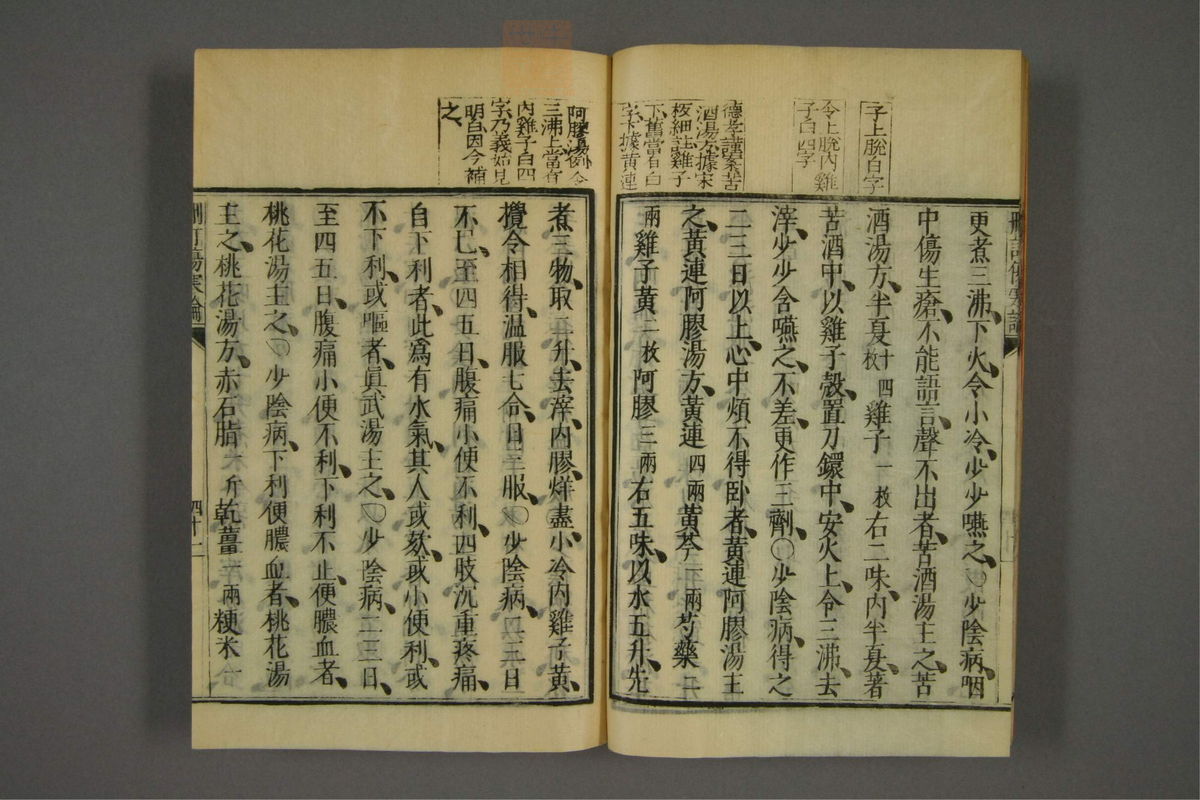 子上脫白字
令上脫內雞
子白四字
德孝謹案苦
酒湯方據宋
板細註雞子
下舊當有白
字下據黃連
阿膠湯例令
三沸上當有
內雞子白四
字乃義始見
明白因今補
之
更煮三沸下火令小冷少少嚥之○少陰病咽
中傷生瘡不能語言聲不出者苦酒湯主之苦
酒湯方半夏十四枚雞子一枚右二味內半夏著
苦酒中以雞子殼置刀鐶中安火上令三沸去
滓少少含嚥之不差更作三劑○少陰病得之
二三日以上心中煩不得臥者黃連阿膠湯主
之黃連阿膠湯方黃連四兩黃芩一兩芍藥二
兩雞子黃二枚阿膠三兩右五味以水五升先
煮三物取二升去滓內膠烊盡小冷內雞子黃
攪令相得温服七合日三服○少陰病二三日
不已至四五日腹痛小便不利四肢沉重疼痛
自下利者此爲有水氣其人或欬或小便利或
不下利或嘔者眞武湯主之○少陰病二三日
至四五日腹痛小便不利下利不止便膿血者
桃花湯主之○少陰病下利便膿血者桃花湯
主之桃花湯方赤石脂一斤乾薑一兩粳米一
刪訂傷寒論
四十一